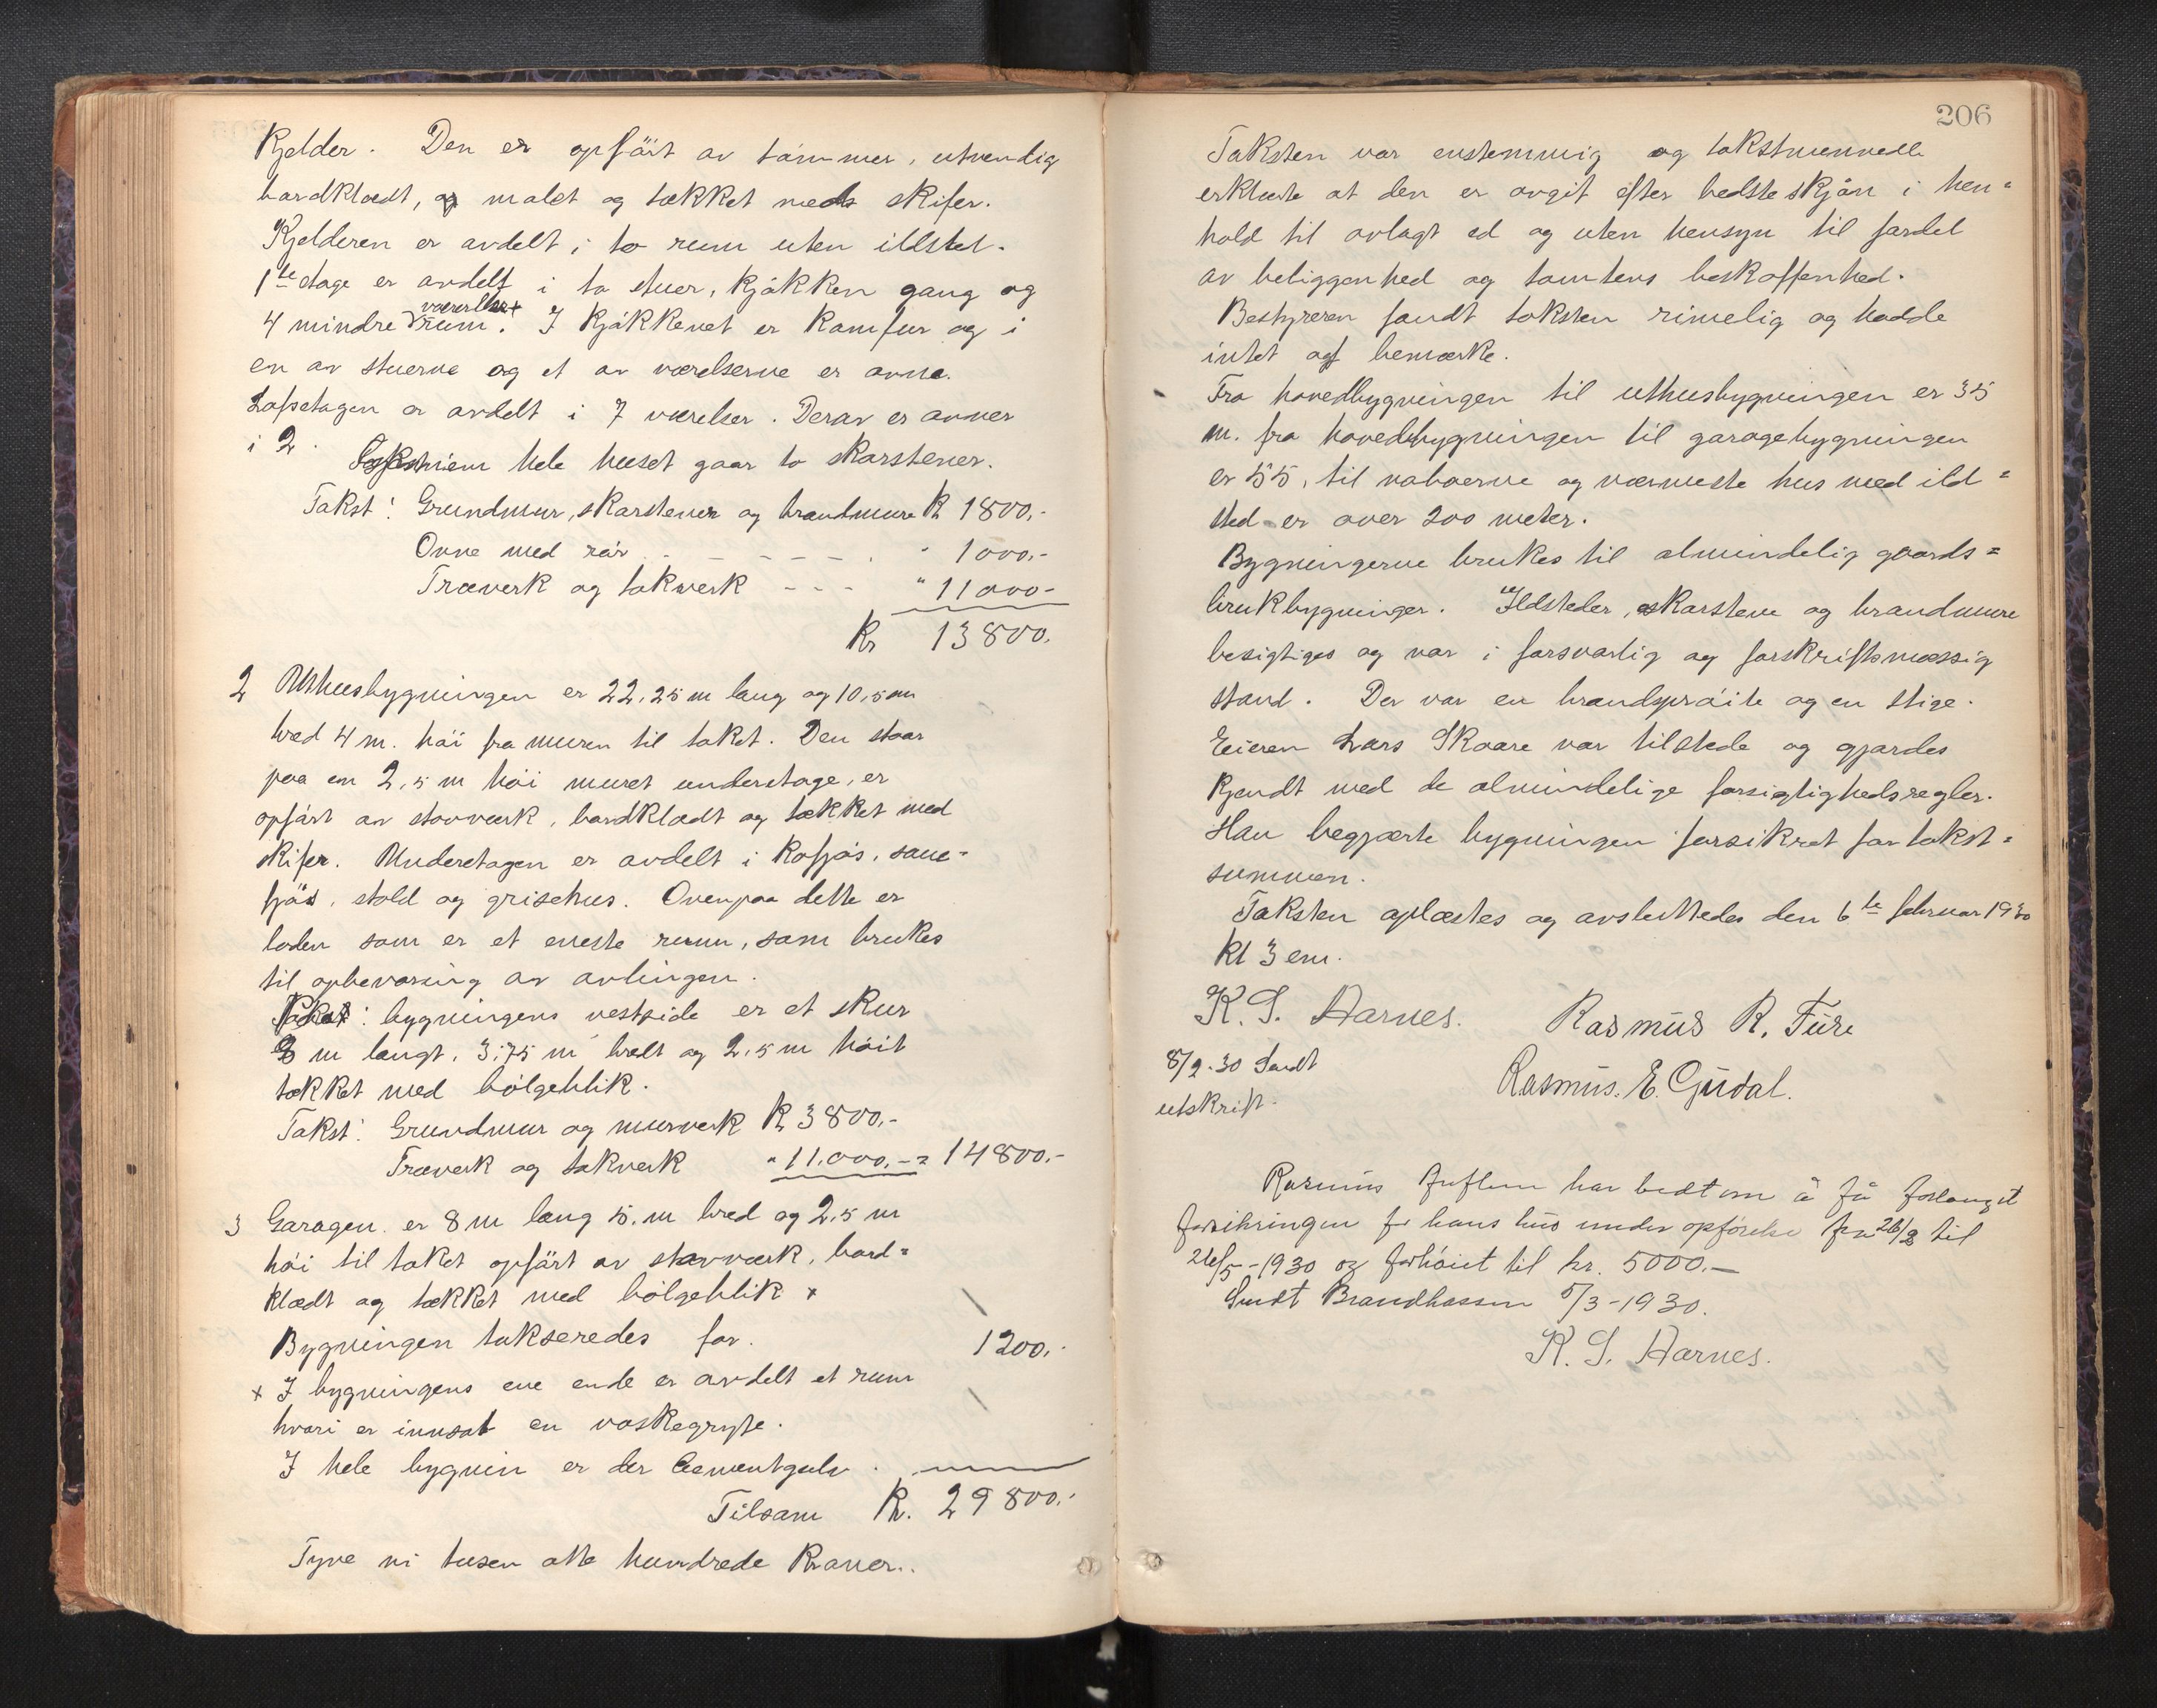 Kjelder. Den er opfört av tömmer, utvendig
bordklædt, og malet og tækket med skifer.
Kjelderen er avdelt i to rum uten ildsted.
1ste etage er avdelt i to stuer, kjökken gang og
værelser
4 mindre rum. I kjökkenet er komfur og i
en av stuerne og et av værelserne er ovne.
Loftsetagen er avdelt i 7 værelser. Derav er ovner
i 2. Gjennem hele huset gaar to skorstener.
Takst: Grundmur, skorstener og brandmure Kr 1800,-
Ovne med rör - - - - - " 1000,-
Træverk og takverk - - - " 11000-
Kr 13800.
2 Uthusbygningen er 22,25 m lang og 10,5 m
bred 4 m. höi fra muren til taket. Den staar
paa en 2,5 m höi muret underetage, er
opfört av stavværk, bordklædt og tækket med
skifer. Underetagen er avdelt i kofjös, saue-
fjös, stald og grisehus. Ovenpaa dette er
loden som er et eneste rum, som brukes
til opbevaring av avlingen.
bygningens vestside er et skur
m langt, 3,75 m bredt og 2,5 m höit
tækket med bölgeblik.
Takst: Grundmur og murverk Kr 3800,-
Træverk og takverk " 11.000,- = 14800.-
3 Garagen er 8 m lang 5. m bred og 2,5 m
höi til taket opfört av stavværk, bord=
klædt og tækket med bölgeblik x
Bygningen takseredes for. 1200.-
x I bygningens ene ende er avdelt et rum
hvori er innsat en vaskegryte.
I hele bygnin er der Cementgulv.
Tilsam Kr. 29800.-
Tyve ni tusen otte hundrede Kroner..
206
Taksten var enstemmig og takstmennene
erklærte at den er avgit efter bedste skjön i hen=
hold til avlagt ed og uten hensyn til fordel
av beliggenhed og tomtens beskaffenhed.
Bestyreren fandt taksten rimelig og hadde
intet at bemærke.
Fra hovedbygningen til uthusbygningen er 35
m. fra hovedbygningen til garagebygningen
er 55, til naboerne og nærmeste hus med ild=
sted er over 200 meter.
Bygningerne brukes til almindelig gaards=
brukbygninger. Ildsteder, skorstene og brandmure
besigtiges og var i forsvarlig og forskriftsmæssig
stand. Der var en brandspröite og en stige.
Eieren Lars Skaare var tilstede og gjordes
kjendt med de almindelige forsigtighedsregler.
Han begjærte bygningen forsikret for takst=
summen.
Taksten oplæstes og avsluttedes den 6te februar 1930
kl 3 em.
K. S. Aarnes. Rasmus R. Fure
8/2-30 Sendt Rasmus. E. Gudal.
utskrift-
Rasmus har bedt om å få forlenget
forsikringen for hans hus under opförelse fra 26/2 til
26/5-1930 og forhöiet til kr. 5000.-
Sendt Brandkassen 5/3-1930.
K. S. Aarnes.